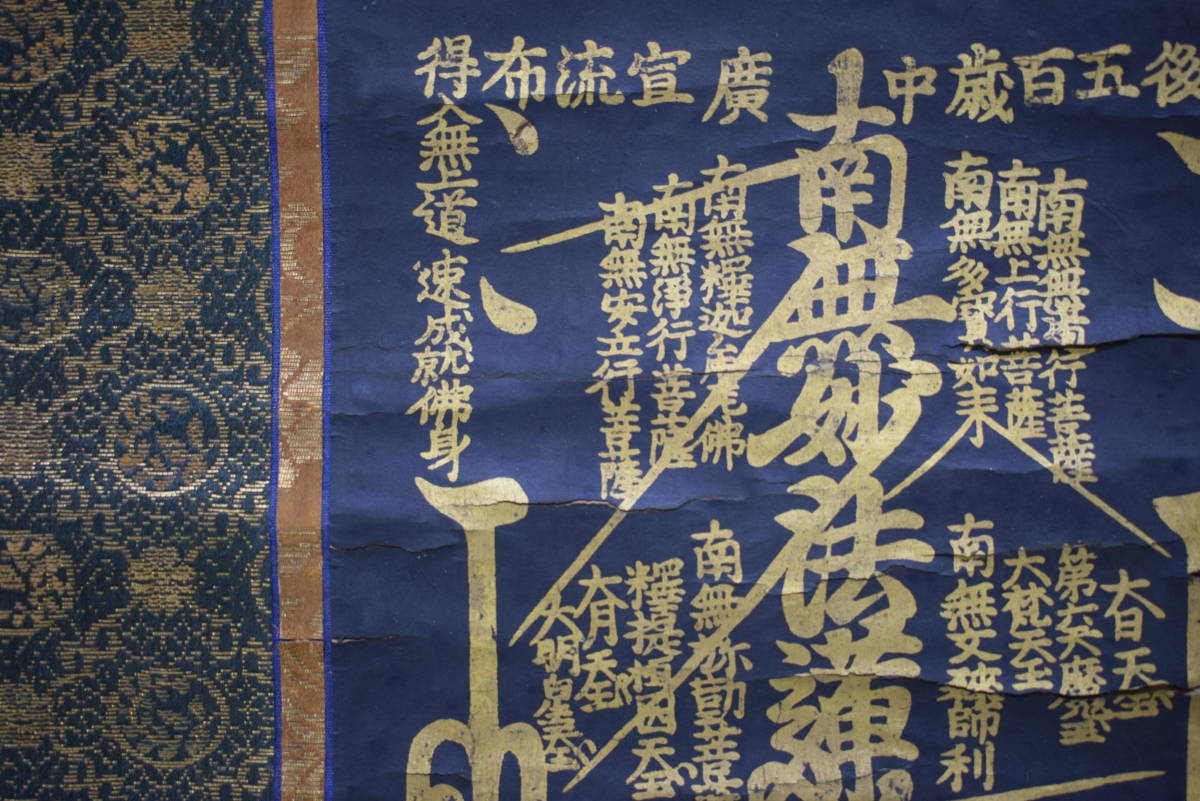 後五百歳中廣宣流布
南無妙法蓮
南無無邊行菩薩
南無上行菩薩
南無多寶如来
南無釋迦牟尼佛
南無淨行菩薩
南無安立行菩薩
得入無上道速成就佛身
大日天王
第六天魔王
大梵天王
南無文殊師利
南無弥勒菩薩
釋提桓因天王
大月天王
大明星天王